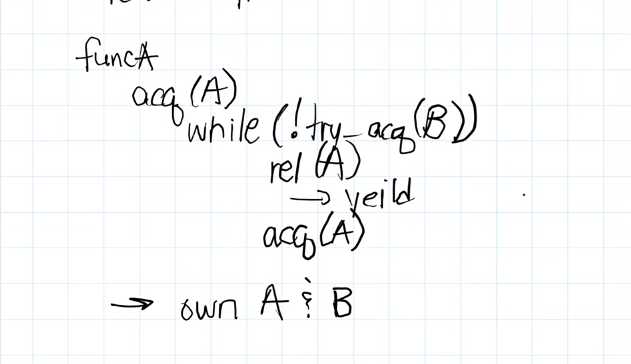 funcA
acq(A)
while (!try_acq(B))
rel(A)
→ yeild
acq(A)
→ own A & B